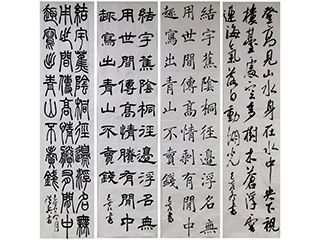 登高見山水身在水中央下視
樓臺處空多樹木蒼浮雲
連海氣落日動湖光
結宇蕉陰桐徑邊浮名無
用世間傳高情剩有閒中
趣寫出青山不賣錢
結宇蕉陰桐徑邊浮名無
用世間傳高情有閒中
趣寫出青山不賣錢
結宇蕉陰桐徑邊浮名無
用世間傳高情有閒中
趣寫出青山不賣錢